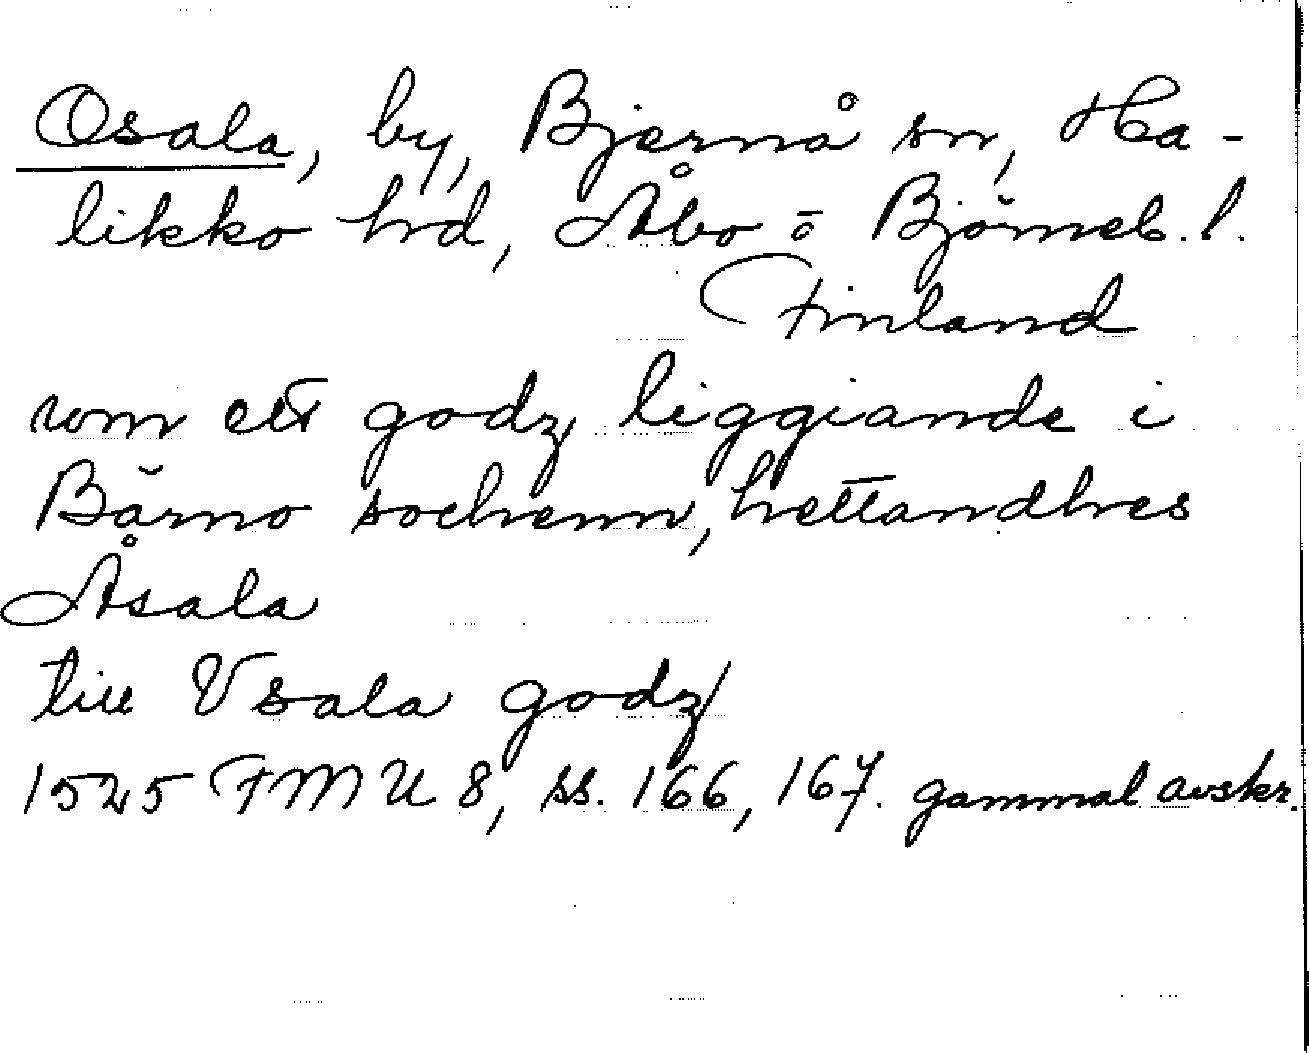 Osala, by, Bjernå sn, Ha-
likko hrd, Åbo o Björneb. l.
Finland
wm ett godz liggiande i
Bårno sochenn, hettandhes
Åsala
till Vsala godz
1525 FMU 8, ss. 166, 167. gammal avskr.